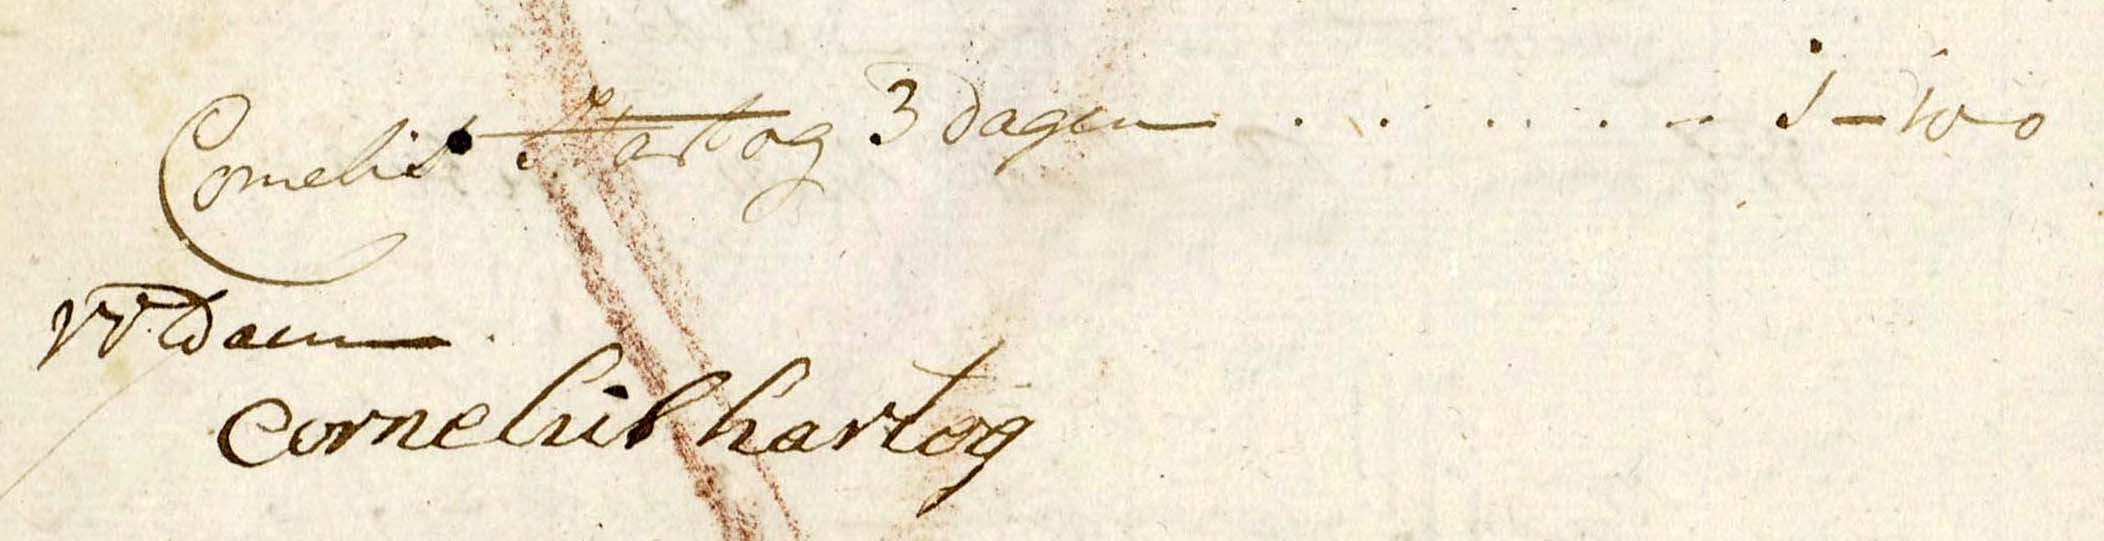 Cornelis Hartog 3 dagen . . . . . . . 1 - 10 0
voldaen
Cornelis hartog